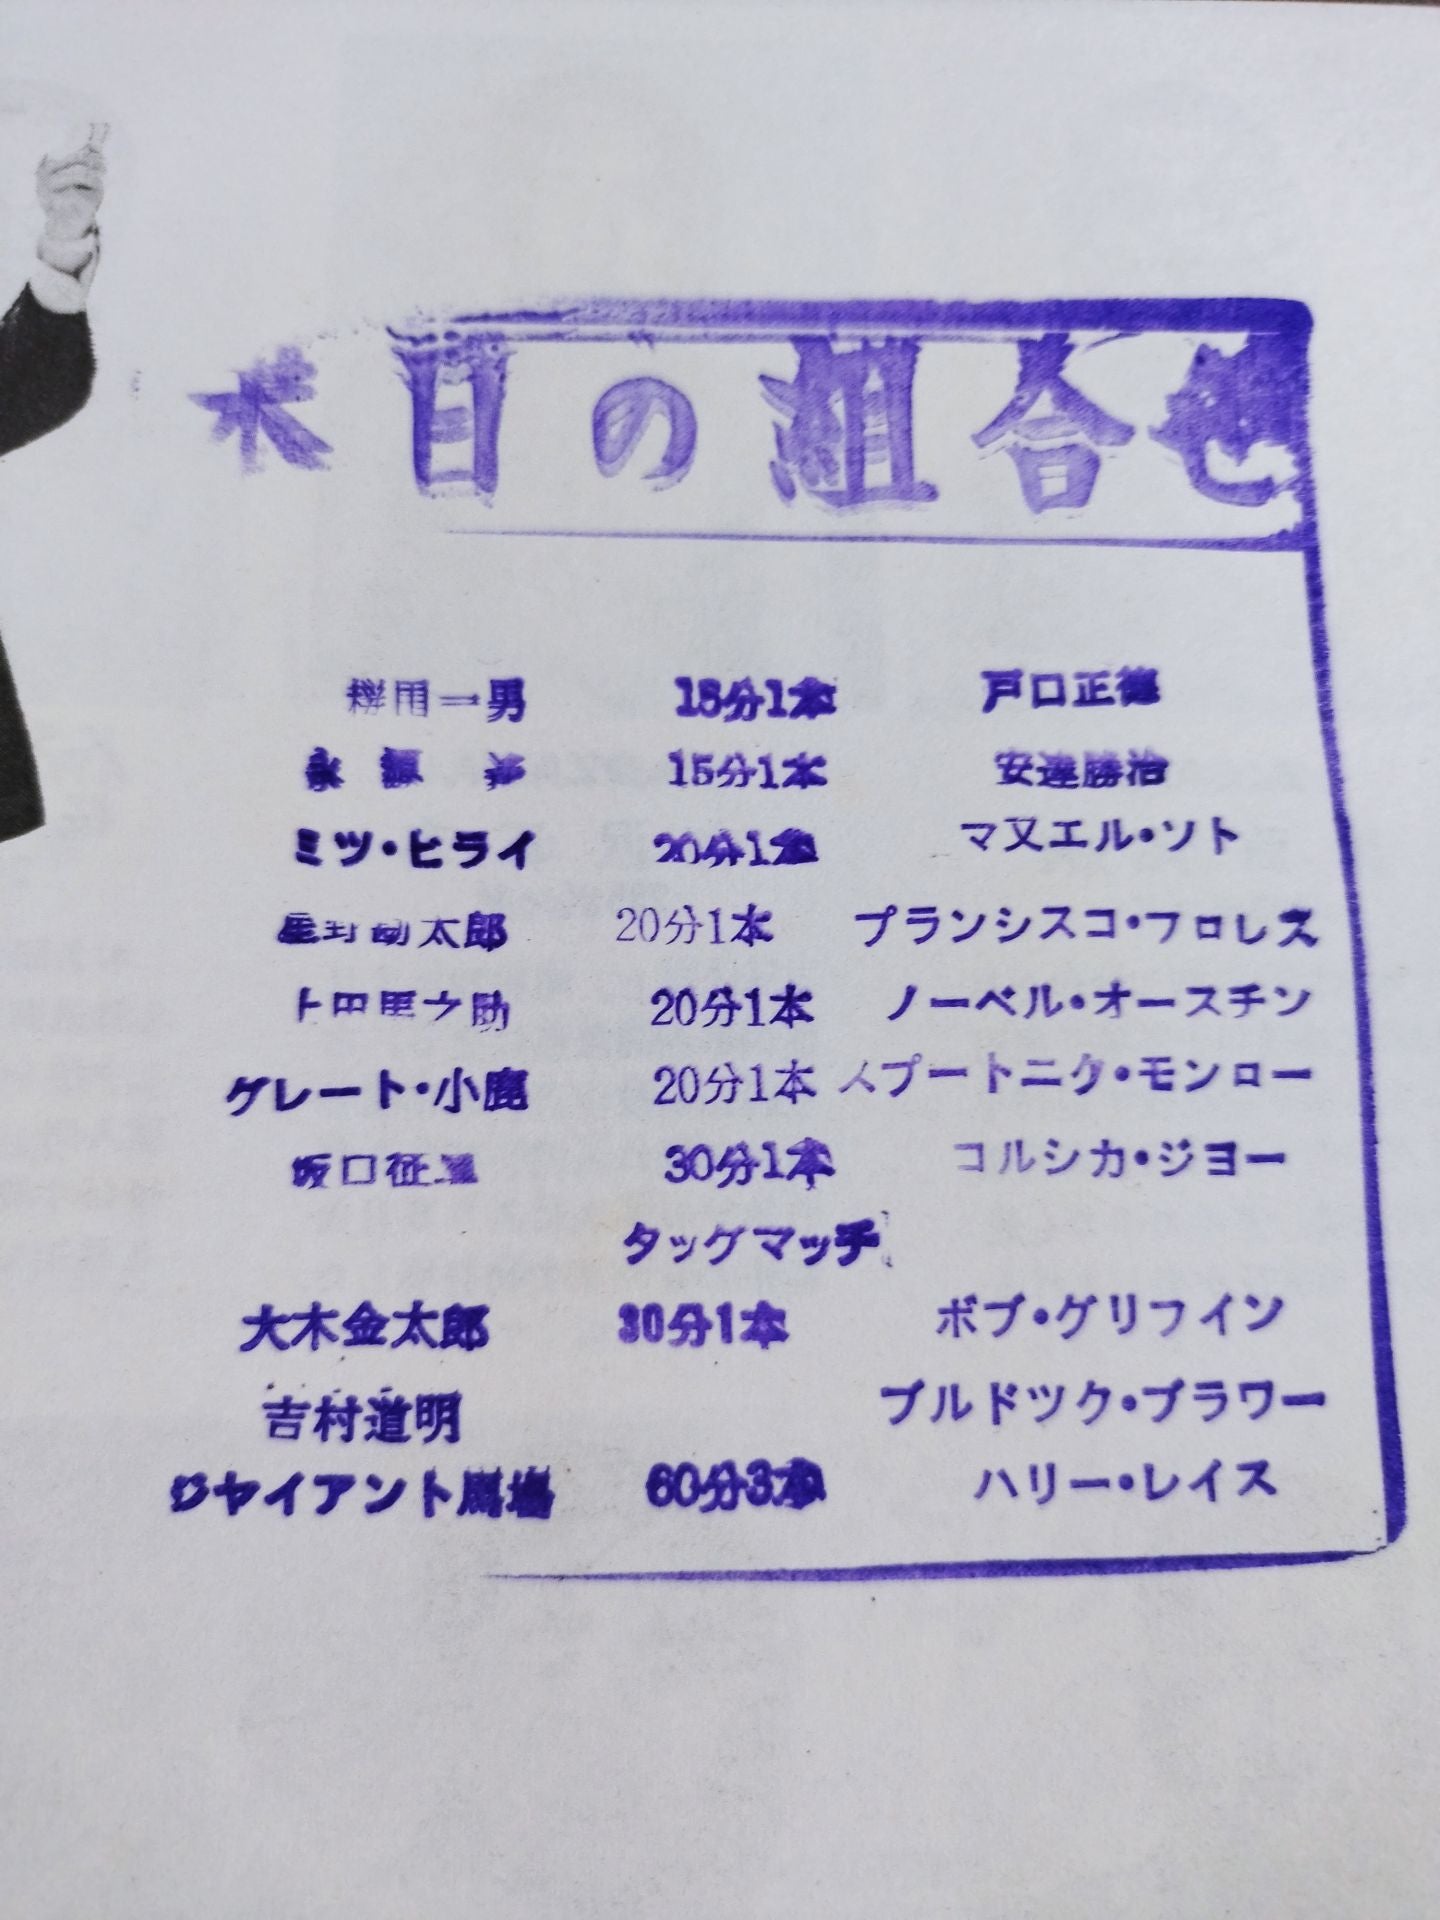 本日の組合せ
桜田一男 15分1本 戸口正徳
永源 遙 15分1本 安達勝治
ミツ・ヒライ 20分1本 マヌエル・ソト
星野勘太郎 20分1本 フランシスコ・フロレス
上田馬之助 20分1本 ノーベル・オースチン
グレート・小鹿 20分1本 スプートニク・モンロー
坂口征二 30分1本 コルシカ・ジヨー
タッグマッチ
大木金太郎 30分1本 ボブ・グリフイン
吉村道明 ブルドツク・ブラワー
ジヤイアント馬場 60分3本 ハリー・レイス